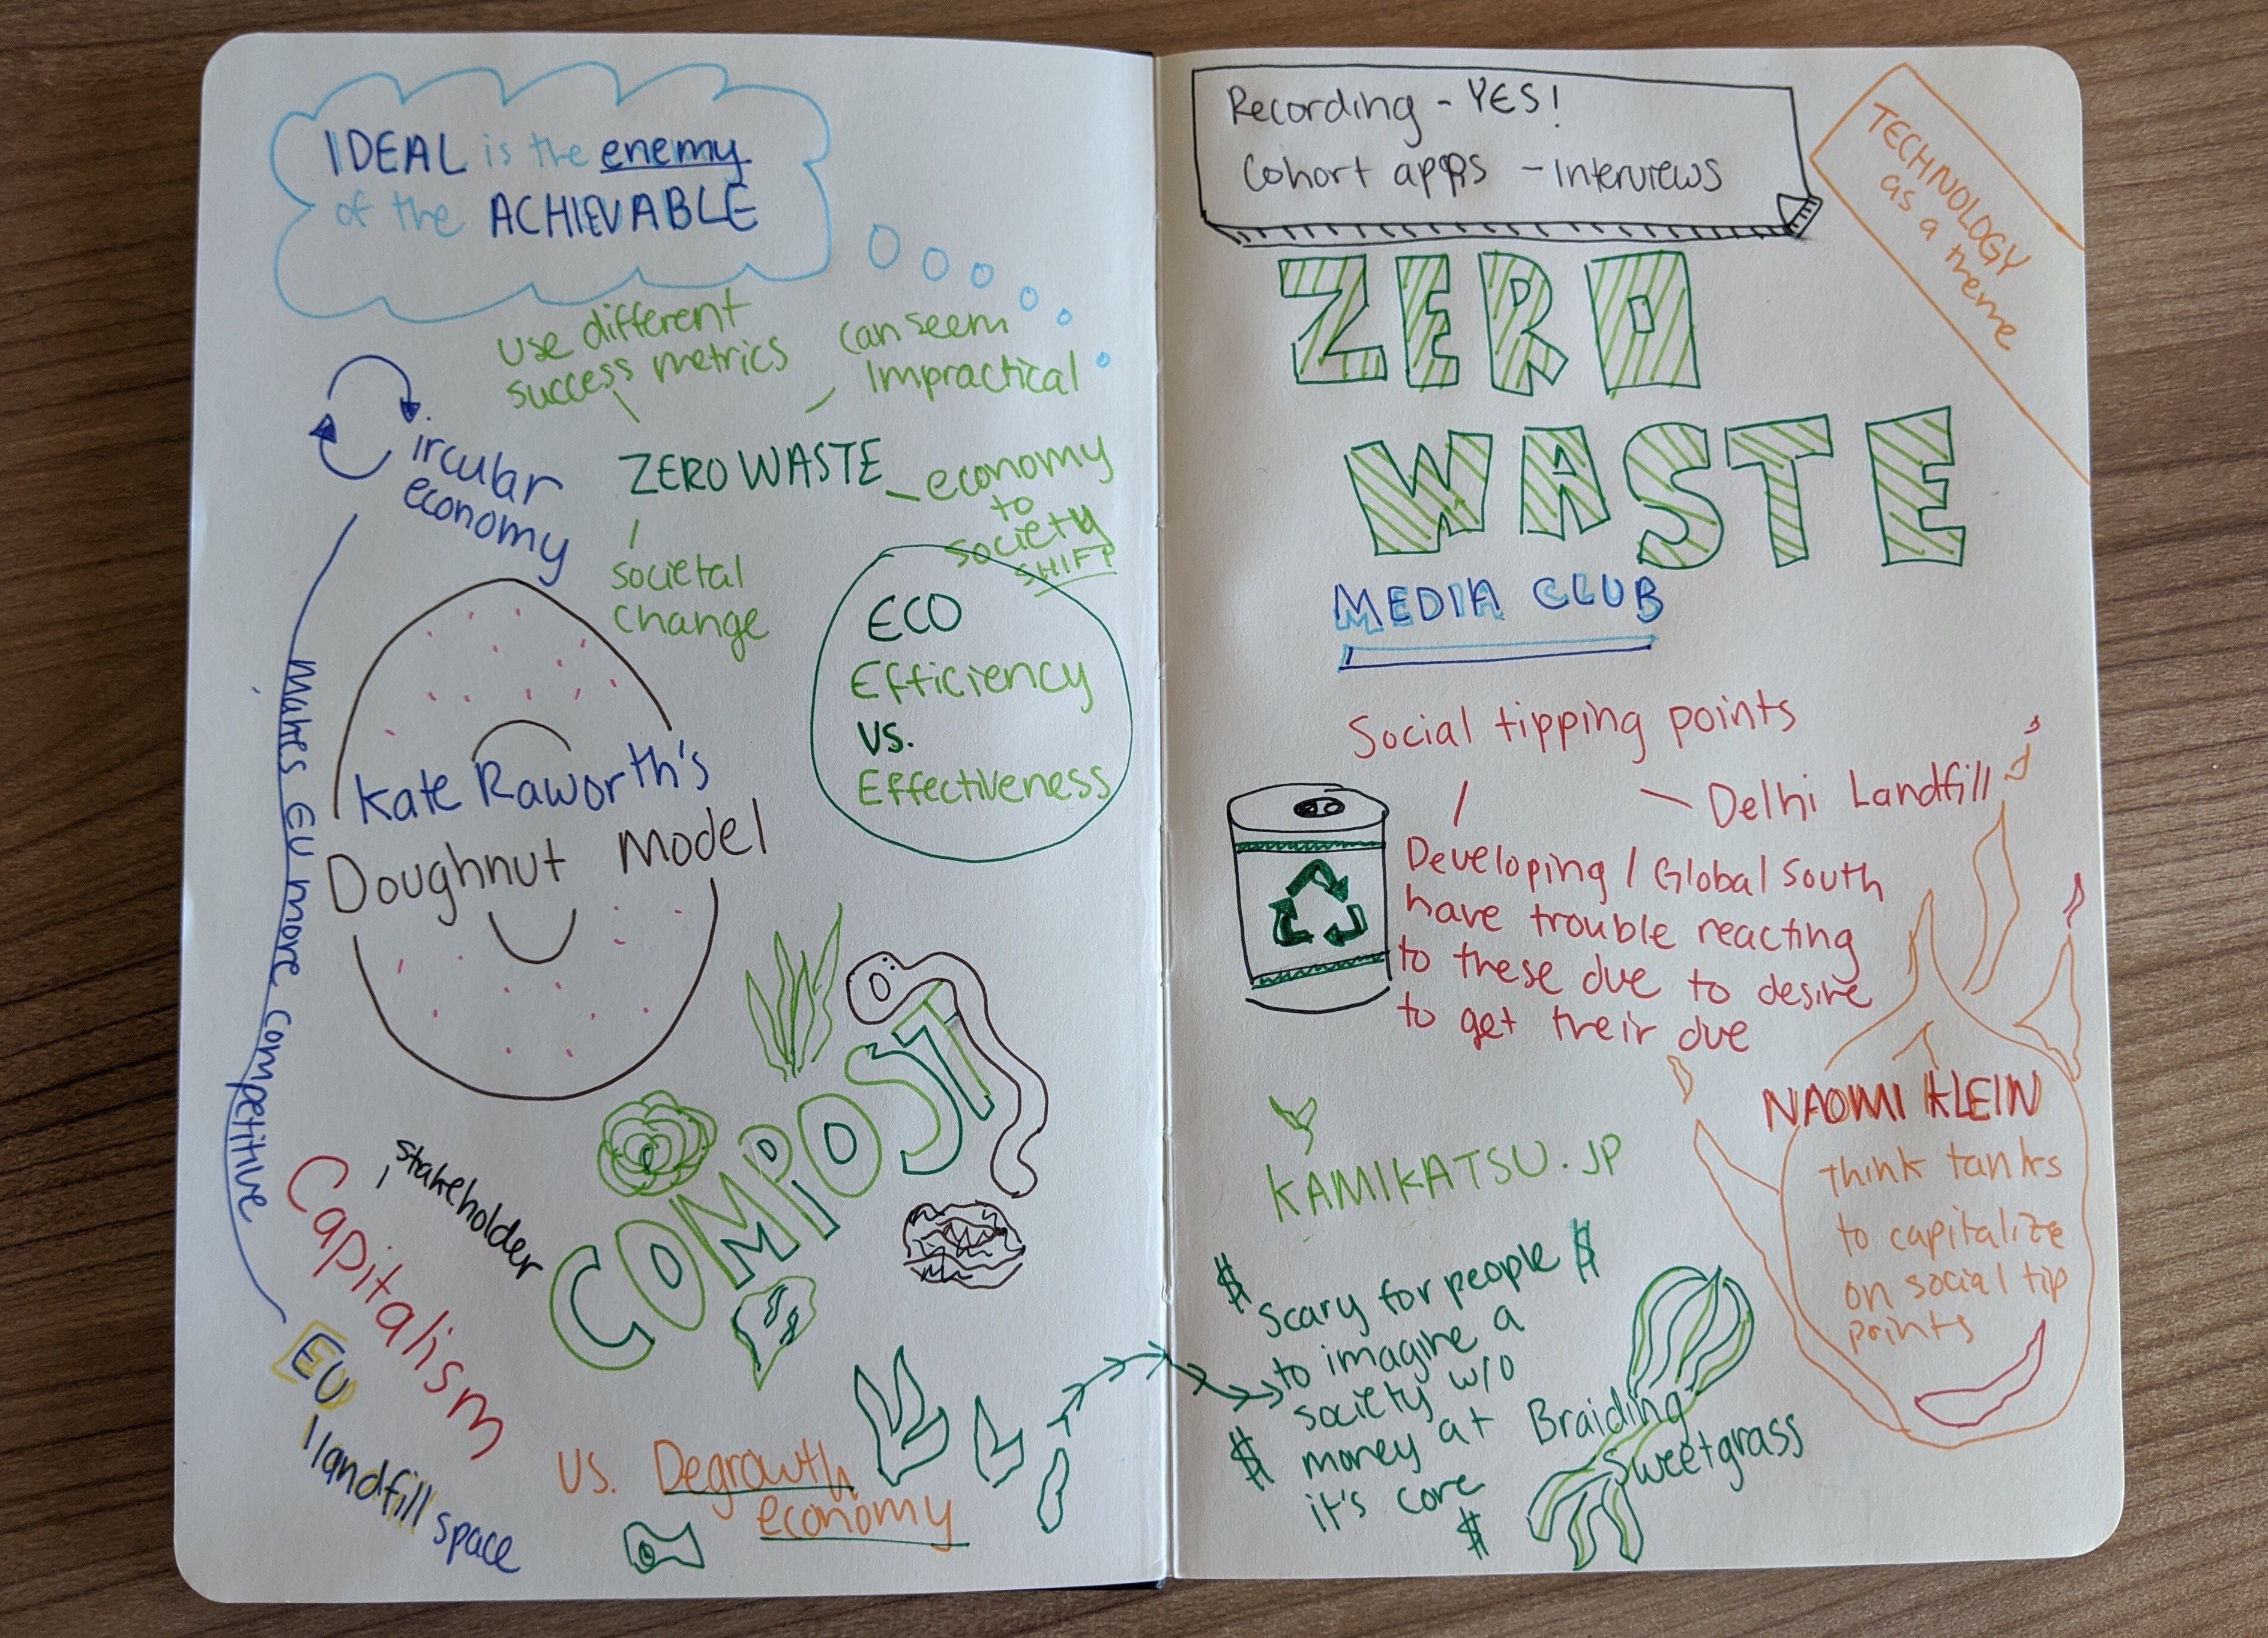 IDEAL is the enemy
of the ACHIEVABLE
use different
success metrics
can seem
impractical
ircular
economy
ZERO WASTE
economy
to
society
SHIFT
societal
change
ECO
Efficiency
vs.
Effectiveness
Makes EU more competitive
Kate Raworth's
Doughnut Model
COMPOST
stakeholder
Capitalism
EU
landfill space
vs. Degrowth
economy
Recording - YES!
Cohort apps - Interviews
TECHNOLOGY
as a theme
ZERO
WASTE
MEDIA CLUB
Social tipping points
Delhi Landfill
Developing / Global South
have trouble reacting
to these due to desire
to get their due
NAOMI KLEIN
think tanks
to capitalize
on social tip
points
KAMIKATSU.JP
$ Scary for people $
to imagine a
society w/o
$ money at
it's core
$
Braiding
Sweetgrass